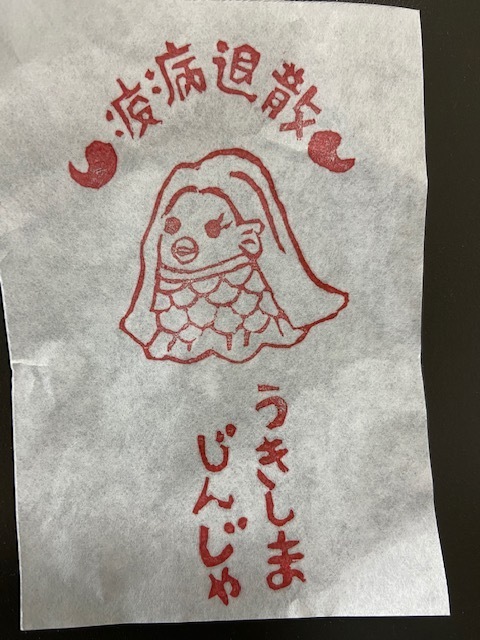 疫病退散
うきしま
じんじゃ